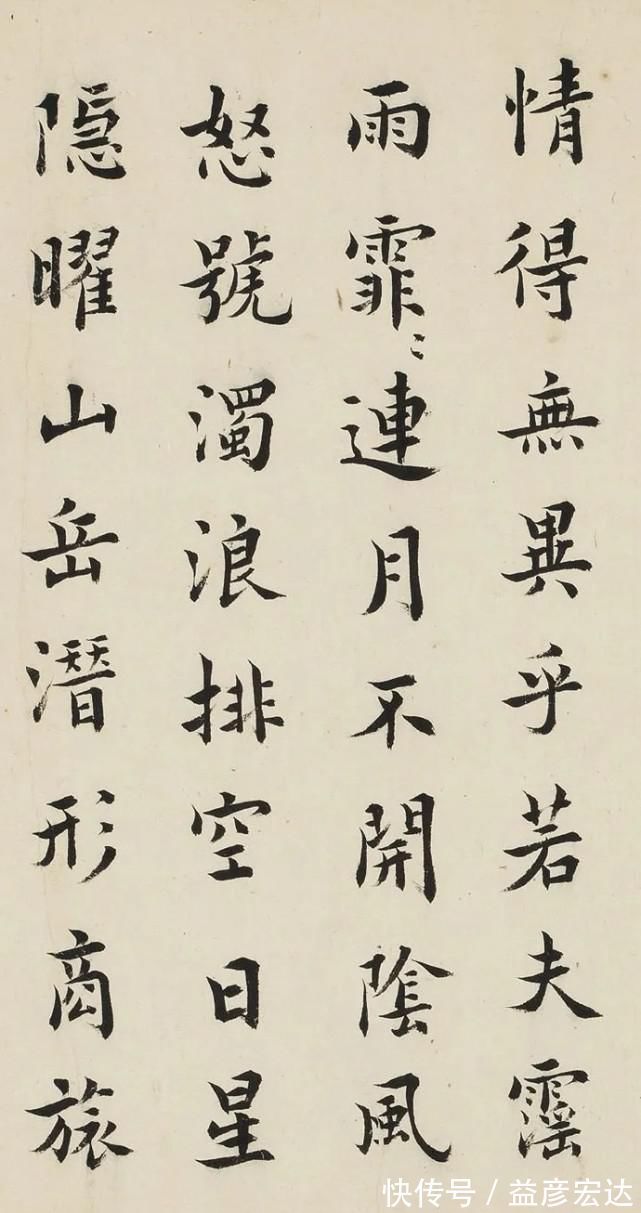 情得無異乎若夫霪
雨霏〻連月不開陰風
怒號濁浪排空日星
隐曜山岳潛形商旅
快传号／益彦宏达